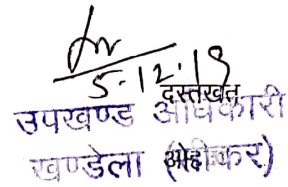 5.12.19
दस्तखत
उपखण्ड अधिकारी
खण्डेला (सीकर)